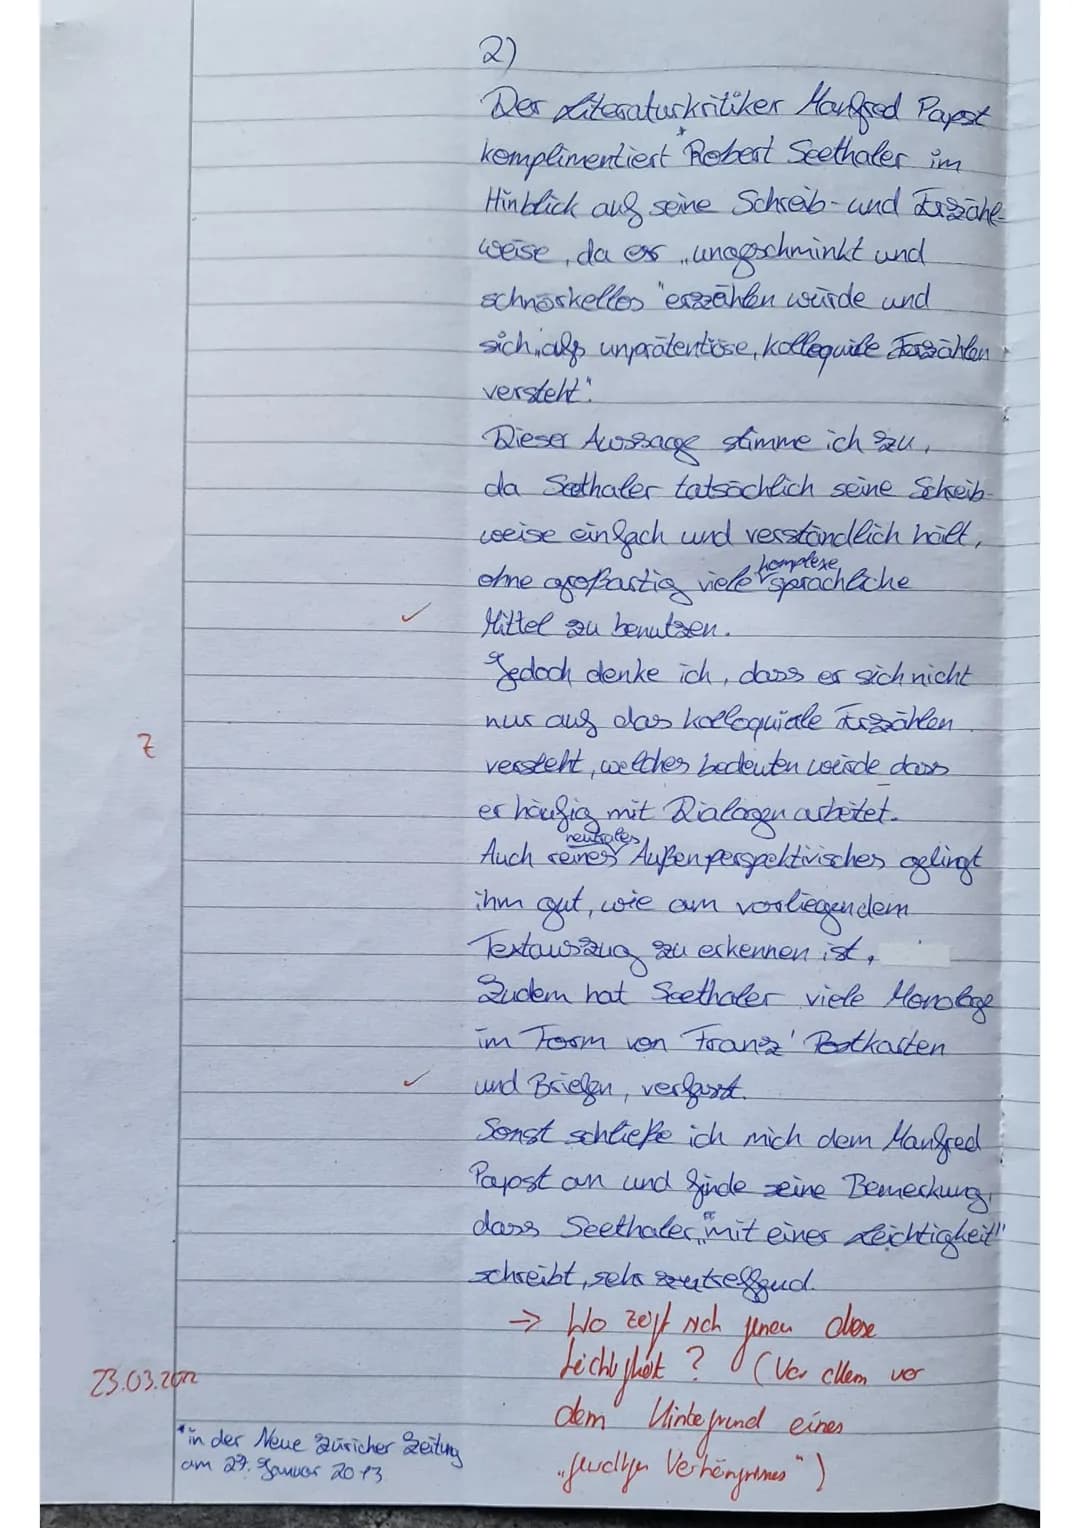 2)
Der Literaturkritiker Manfred Papst
komplimentiert * Robert Seethaler im
Hinblick auf seine Schreib- und Erzähl-
weise, da er „ungeschminkt und
schnörkellos" erzählen würde und
sich „aufs unprätentiöse, kolloquiale Erzählen
versteht".
Dieser Aussage stimme ich zu,
da Seethaler tatsächlich seine Schreib-
weise einfach und verständlich hält,
ohne großartig viele komplexe sprachliche
Mittel zu benutzen.
Jedoch denke ich, dass er sich nicht
nur auf das kolloquiale Erzählen
Z
versteht, welches bedeuten würde dass
er häufig mit Dialogen arbeitet.
Auch reines neutrales Außenperspektivisches gelingt
ihm gut, wie am vorliegendem
Textauszug zu erkennen ist.
Zudem hat Seethaler viele Monologe
im Form von Franz' Postkarten
und Briefen, verfasst.
Sonst schließe ich mich dem Manfred
Papst an und finde seine Bemerkung,
dass Seethaler „mit einer Leichtigkeit"
schreibt, sehr zutreffend.
→ Wo zeigt sich genau diese
Leichtigkeit? (Vor allem vor
dem Hintergrund eines
Verhängnisses")
23.03.2022
*in der Neue Züricher Zeitung
am 27. Januar 2013